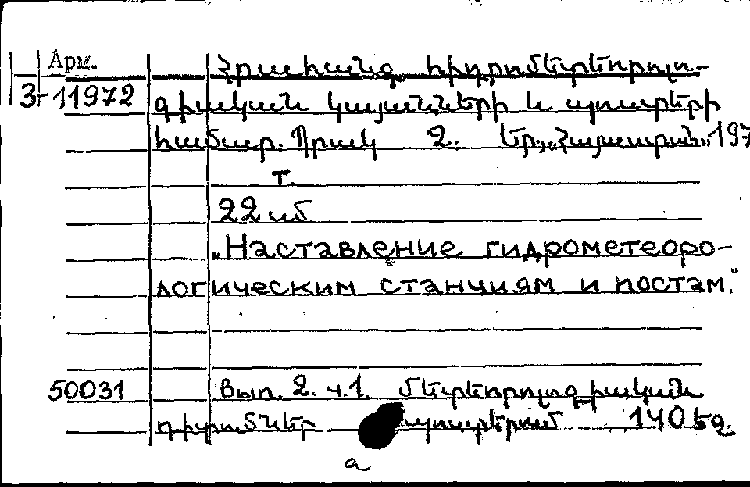 Арм.
Հրահանգ հիդրոմետեորոլո-
3-11972 գիական կայանների և պոստերի
համար. Պրակ 2. Եր., „Հայաստան„ 197
т.
22 սմ
„Наставление гидрометеоро-
логическим станциям и постам."
50031 Вып. 2. ч.1. մետեորոլոգիական
դիտումներ պոստերում 140 եջ.
а